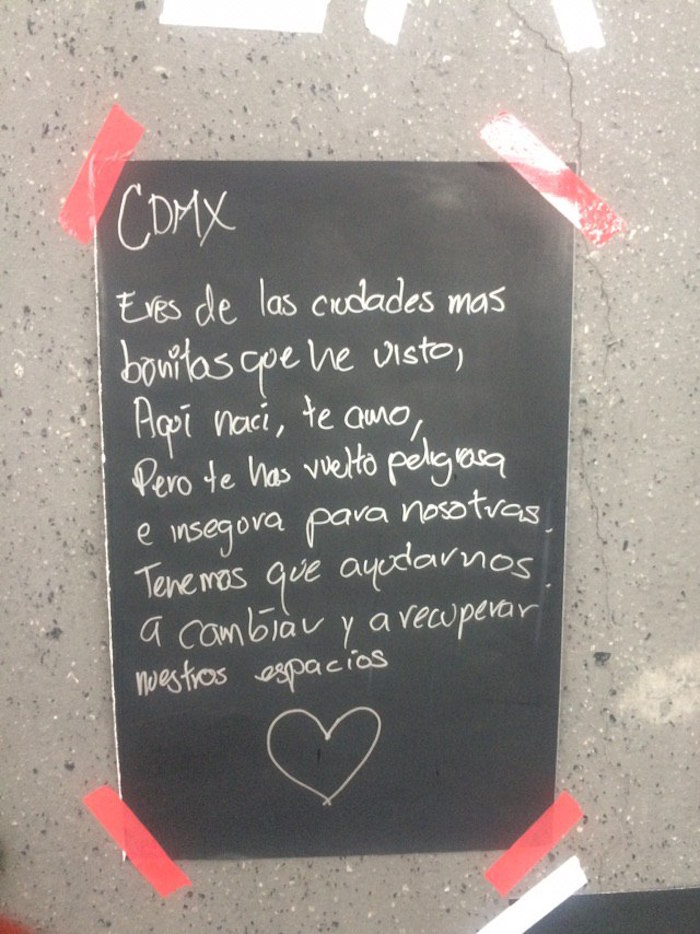 CDMX
Eres de las ciudades mas
bonitas que he visto,
Aquí naci, te amo,
Pero te has vuelto peligrosa
e insegura para nosotras.
Tenemos que ayudarnos
a cambiar y a recuperar
nuestros espacios